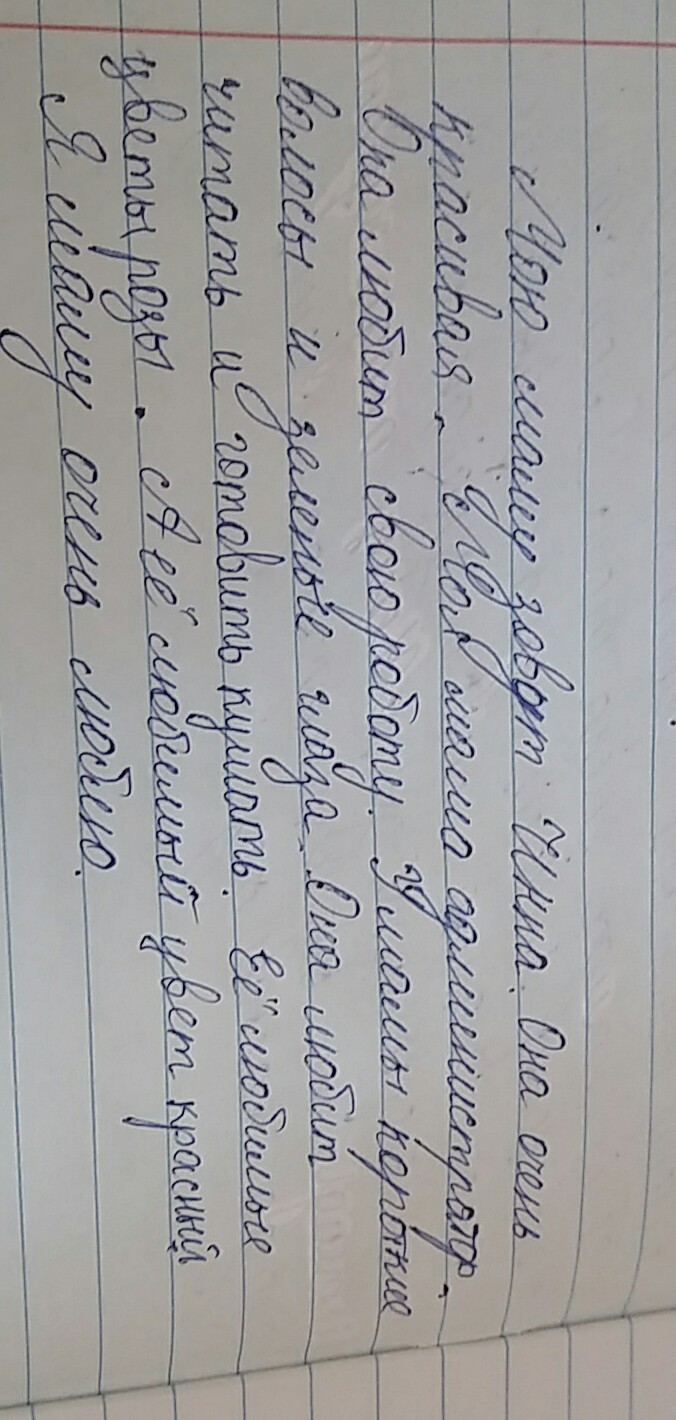 Мою маму зовут Инна. Она очень
красивая. Моя мама администратор.
Она любит свою работу. У мамы короткие
волосы и зеленые глаза. Она любит
читать и готовить кушать. Её любимые
цветы розы. А её любимый цвет красный
Я маму очень люблю.